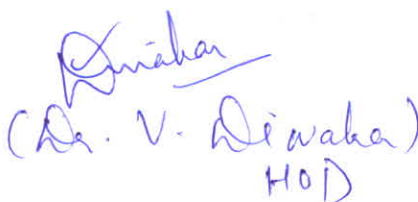 Diwakar
(Dr. V. Diwakar)
HOD